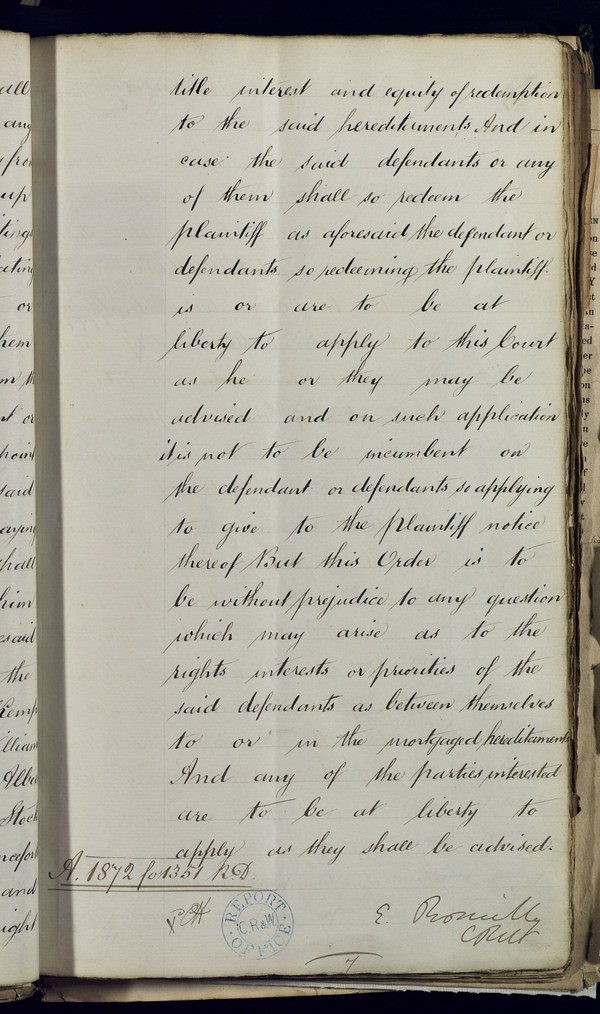 title interest and equity of redemption
to the said hereditaments And in
case the said defendants or any
of them shall so redeem the
plaintiff as aforesaid the defendant or
defendants so redeeming the plaintiff
is or are to be at
liberty to apply to this Court
as he or they may be
advised and on such application
it is not to be incumbent on
the defendant or defendants so applying
to give to the plaintiff notice
thereof But this Order is to
be without prejudice to any question
which may arise as to the
rights interests or priorities of the
said defendants as between themselves
to or in the mortgaged hereditaments
And any of the parties interested
are to be at liberty to
apply as they shall be advised.
A. 1872 fo 1351
REPORT OFFICE
E. Romilly
CR&W
7
all
any
up
or
said
shall
him
the
and